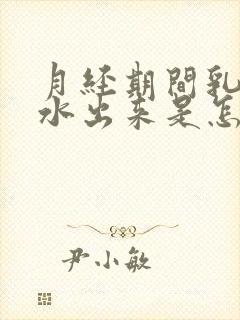 月经期間乳
水出来是怎
尹小敏